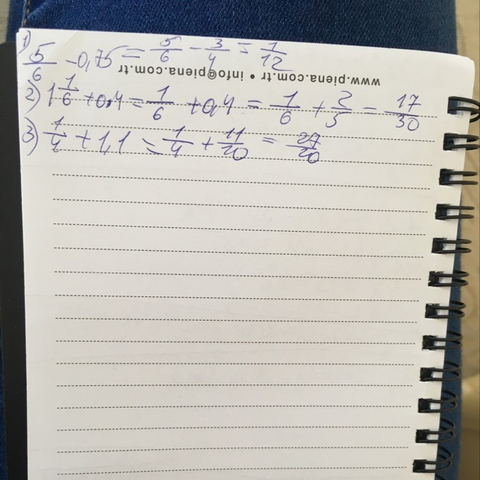 1)
5/6 - 0,75 = 5/6 - 3/4 = 1/12
www.piena.com.tr • info@piena.com.tr
2) 1 1/6 + 0,4 = 1/6 + 0,4 = 1/6 + 2/5 = 17/30
3) 1/4 + 1,1 = 1/4 + 11/20 = 27/20